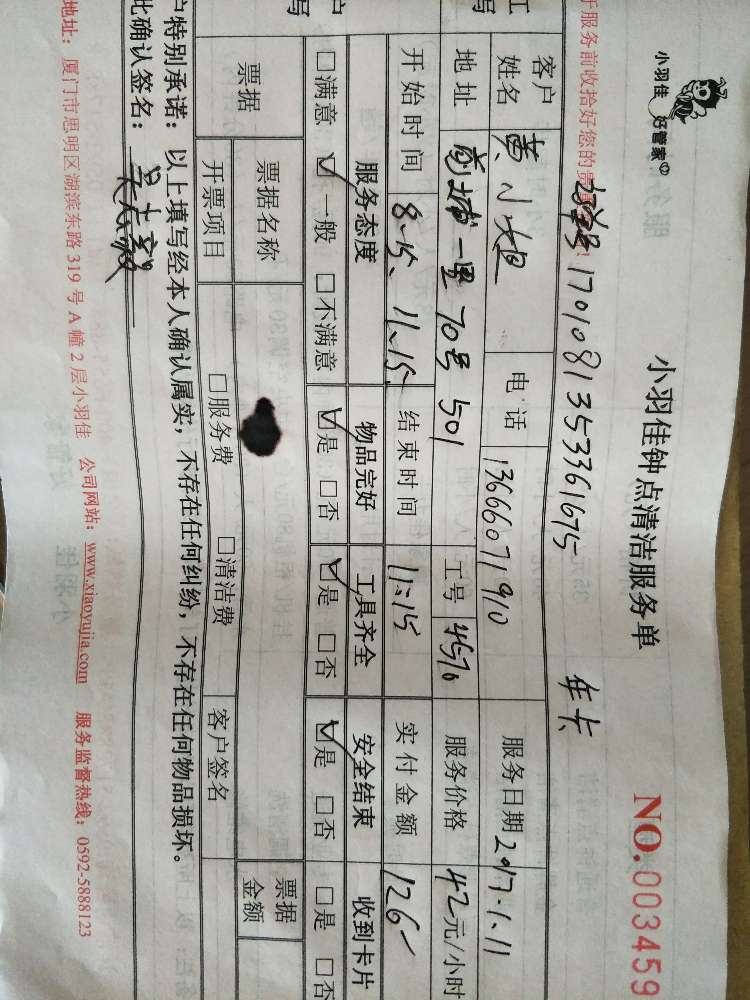 小羽佳 好管家
小羽佳钟点清洁服务单
NO.003459
于服务前收拾好您的贵
1701081353361675 年卡
客户姓名 黄小姐 电话 13666071910 服务日期 2017.1.11
地址 70号 501 工号 4576 服务价格 42元/小时
开始时间 8:15、11:15 结束时间 11:15 实付金额 126
服务态度 物品完好 工具齐全 安全结束 收到卡片
□满意 ☑一般 □不满意 ☑是 □否 ☑是 □否 ☑是 □否 □是 □否
票据 票据名称 票据金额
开票项目 □服务费 □清洁费 客户签名
户特别承诺：以上填写经本人确认属实，不存在任何纠纷，不存在任何物品损坏。
此确认签名：
地址：厦门市思明区湖滨东路319号A幢2层小羽佳 公司网站：www.xiaoyujia.com 服务监督热线：0592-5888123